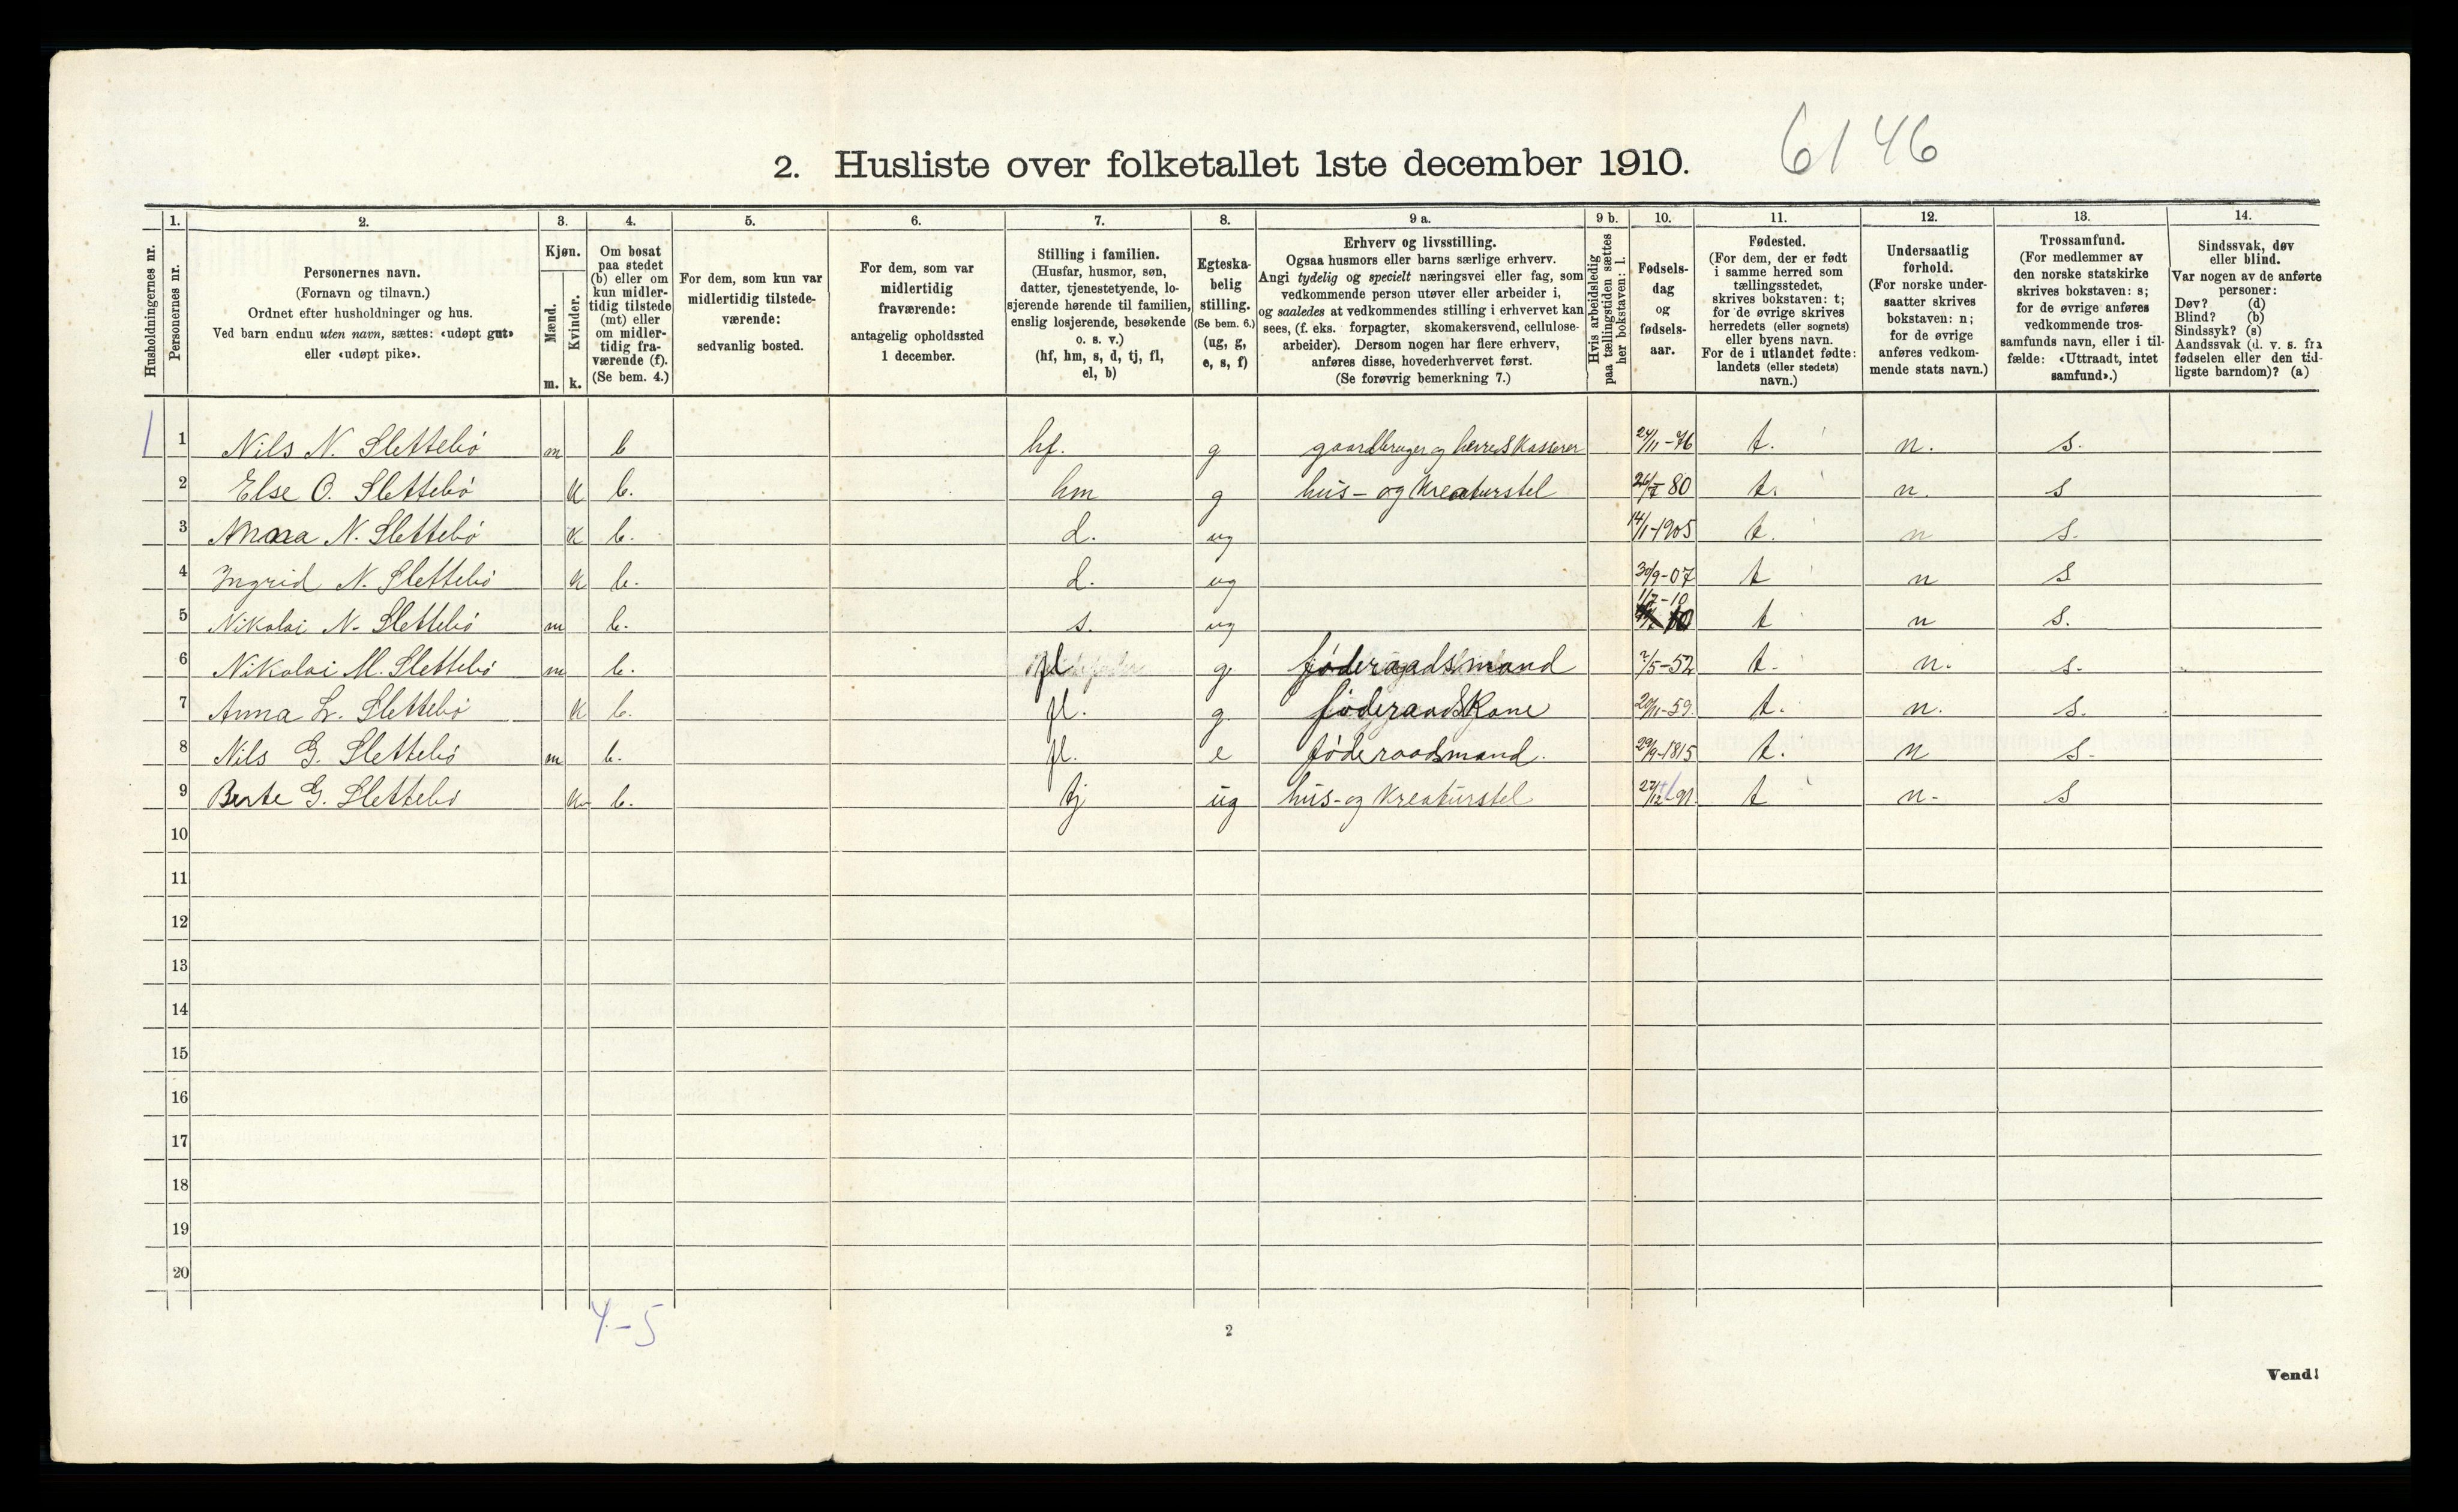 6146
2. Husliste over folketallet 1ste december 1910.
1. 2. 3. 4. 5. 6. 7. 8. 9 a. 9 b. 10. 11. 12. 13. 14.
Husholdningernes nr.
Personernes nr.
Personernes navn.
(Fornavn og tilnavn.)
Ordnet efter husholdninger og hus.
Ved barn endnu uten navn, sættes: «udøpt gut»
eller «udøpt pike».
Kjøn.
Mænd.
Kvinder.
m. k.
Om bosat
paa stedet
(b) eller om
kun midler-
tidig tilstede
(mt) eller
om midler-
tidig fra-
værende (f).
(Se bem. 4.)
For dem, som kun var
midlertidig tilstede-
værende:
sedvanlig bosted.
For dem, som var
midlertidig
fraværende:
antagelig opholdssted
1 december.
Stilling i familien.
(Husfar, husmor, søn,
datter, tjenestetyende, lo-
sjerende hørende til familien,
enslig losjerende, besøkende
o. s. v.)
(hf, hm, s, d, tj, fl,
el, b)
Egteska-
belig
stilling.
(Se bem. 6.)
(ug, g,
e, s, f)
Erhverv og livsstilling.
Ogsaa husmors eller barns særlige erhverv.
Angi tydelig og specielt næringsvei eller fag, som
vedkommende person utøver eller arbeider i,
og saaledes at vedkommendes stilling i erhvervet kan
sees, (f. eks. forpagter, skomakersvend, cellulose-
arbeider). Dersom nogen har flere erhverv,
anføres disse, hovederhvervet først.
(Se forøvrig bemerkning 7.)
Hvis arbeidsledig
paa tællingstiden sættes
her bokstaven: l.
Fødsels-
dag
og
fødsels-
aar.
Fødested.
(For dem, der er født
i samme herred som
tællingsstedet,
skrives bokstaven: t;
for de øvrige skrives
herredets (eller sognets)
eller byens navn.
For de i utlandet fødte:
landets (eller stedets)
navn.)
Undersaatlig
forhold.
(For norske under-
saatter skrives
bokstaven: n;
for de øvrige
anføres vedkom-
mende stats navn.)
Trossamfund.
(For medlemmer av
den norske statskirke
skrives bokstaven: s;
for de øvrige anføres
vedkommende tros-
samfunds navn, eller i til-
fælde: «Uttraadt, intet
samfund».)
Sindssvak, døv
eller blind.
Var nogen av de anførte
personer:
Døv? (d)
Blind? (b)
Sindssyk? (s)
Aandssvak (d. v. s. fra
fødselen eller den tid-
ligste barndom)? (a)
1 1 Nils N. Slettebö m b hf. g gaardbruger og herredskasserer 24/11-76 t. n. s.
2 Else O. Slettebö k b. hm g hus- og kreaturstel 26/7 80 t. n. s
3 Anna N. Slettebö k b. d. ug 14/1-1905 t. n s.
4 Ingrid N. Slettebö k b. d. ug 30/9-07 t n s
5 Nikolai N. Slettebö m b. s. ug 11/7-10 t n s.
6 Nikolai M. Slettebö m b. fl g. föderaadsmand 2/5-52 t. n. s.
7 Anna L. Slettebö k b. fl. g. föderaadskone 20/11-59. t. n. s.
8 Nils G. Slettebö m b. fl. e föderaadsmand. 29/9-1815 t. n s.
9 Berte G. Slettebö k b. tj ug hus- og kreaturstel 27/12-91 t n. s
10
11
12
13
14
15
16
17
18
19
20
4-5
2
Vend!